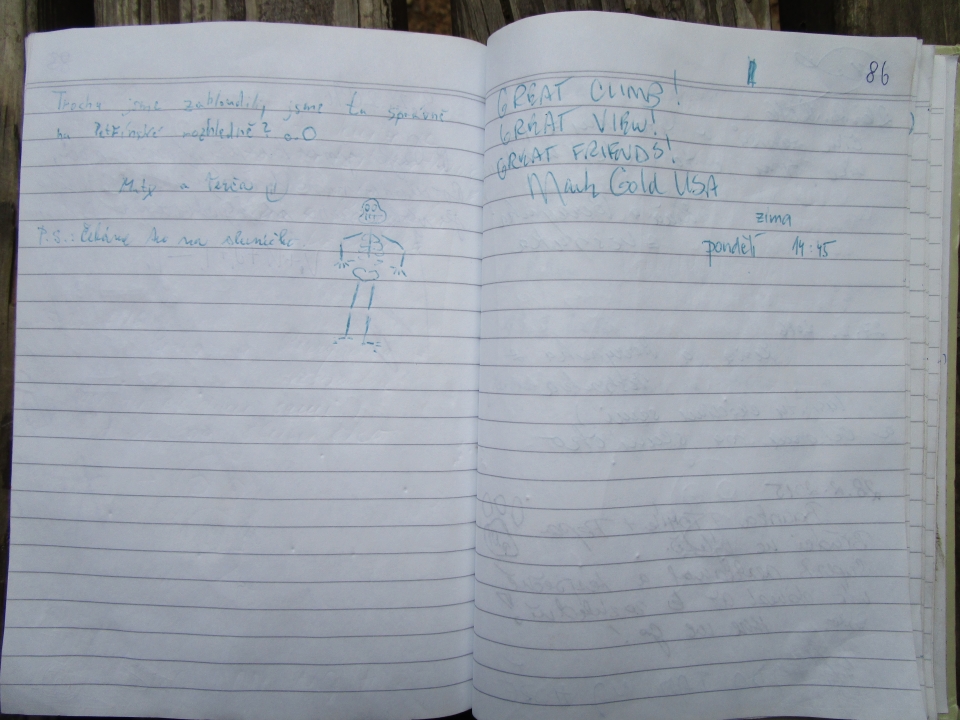 Trochu jsme zabloudily jsme tu správně
na Petřínské rozhledně? o.O
Maty a Terča
P.S.: Čekáme tu na sluníčko
86
GREAT CLIMB!
GREAT VIEW!
GREAT FRIENDS!
Mark Gold USA
zima
pondělí 14:45